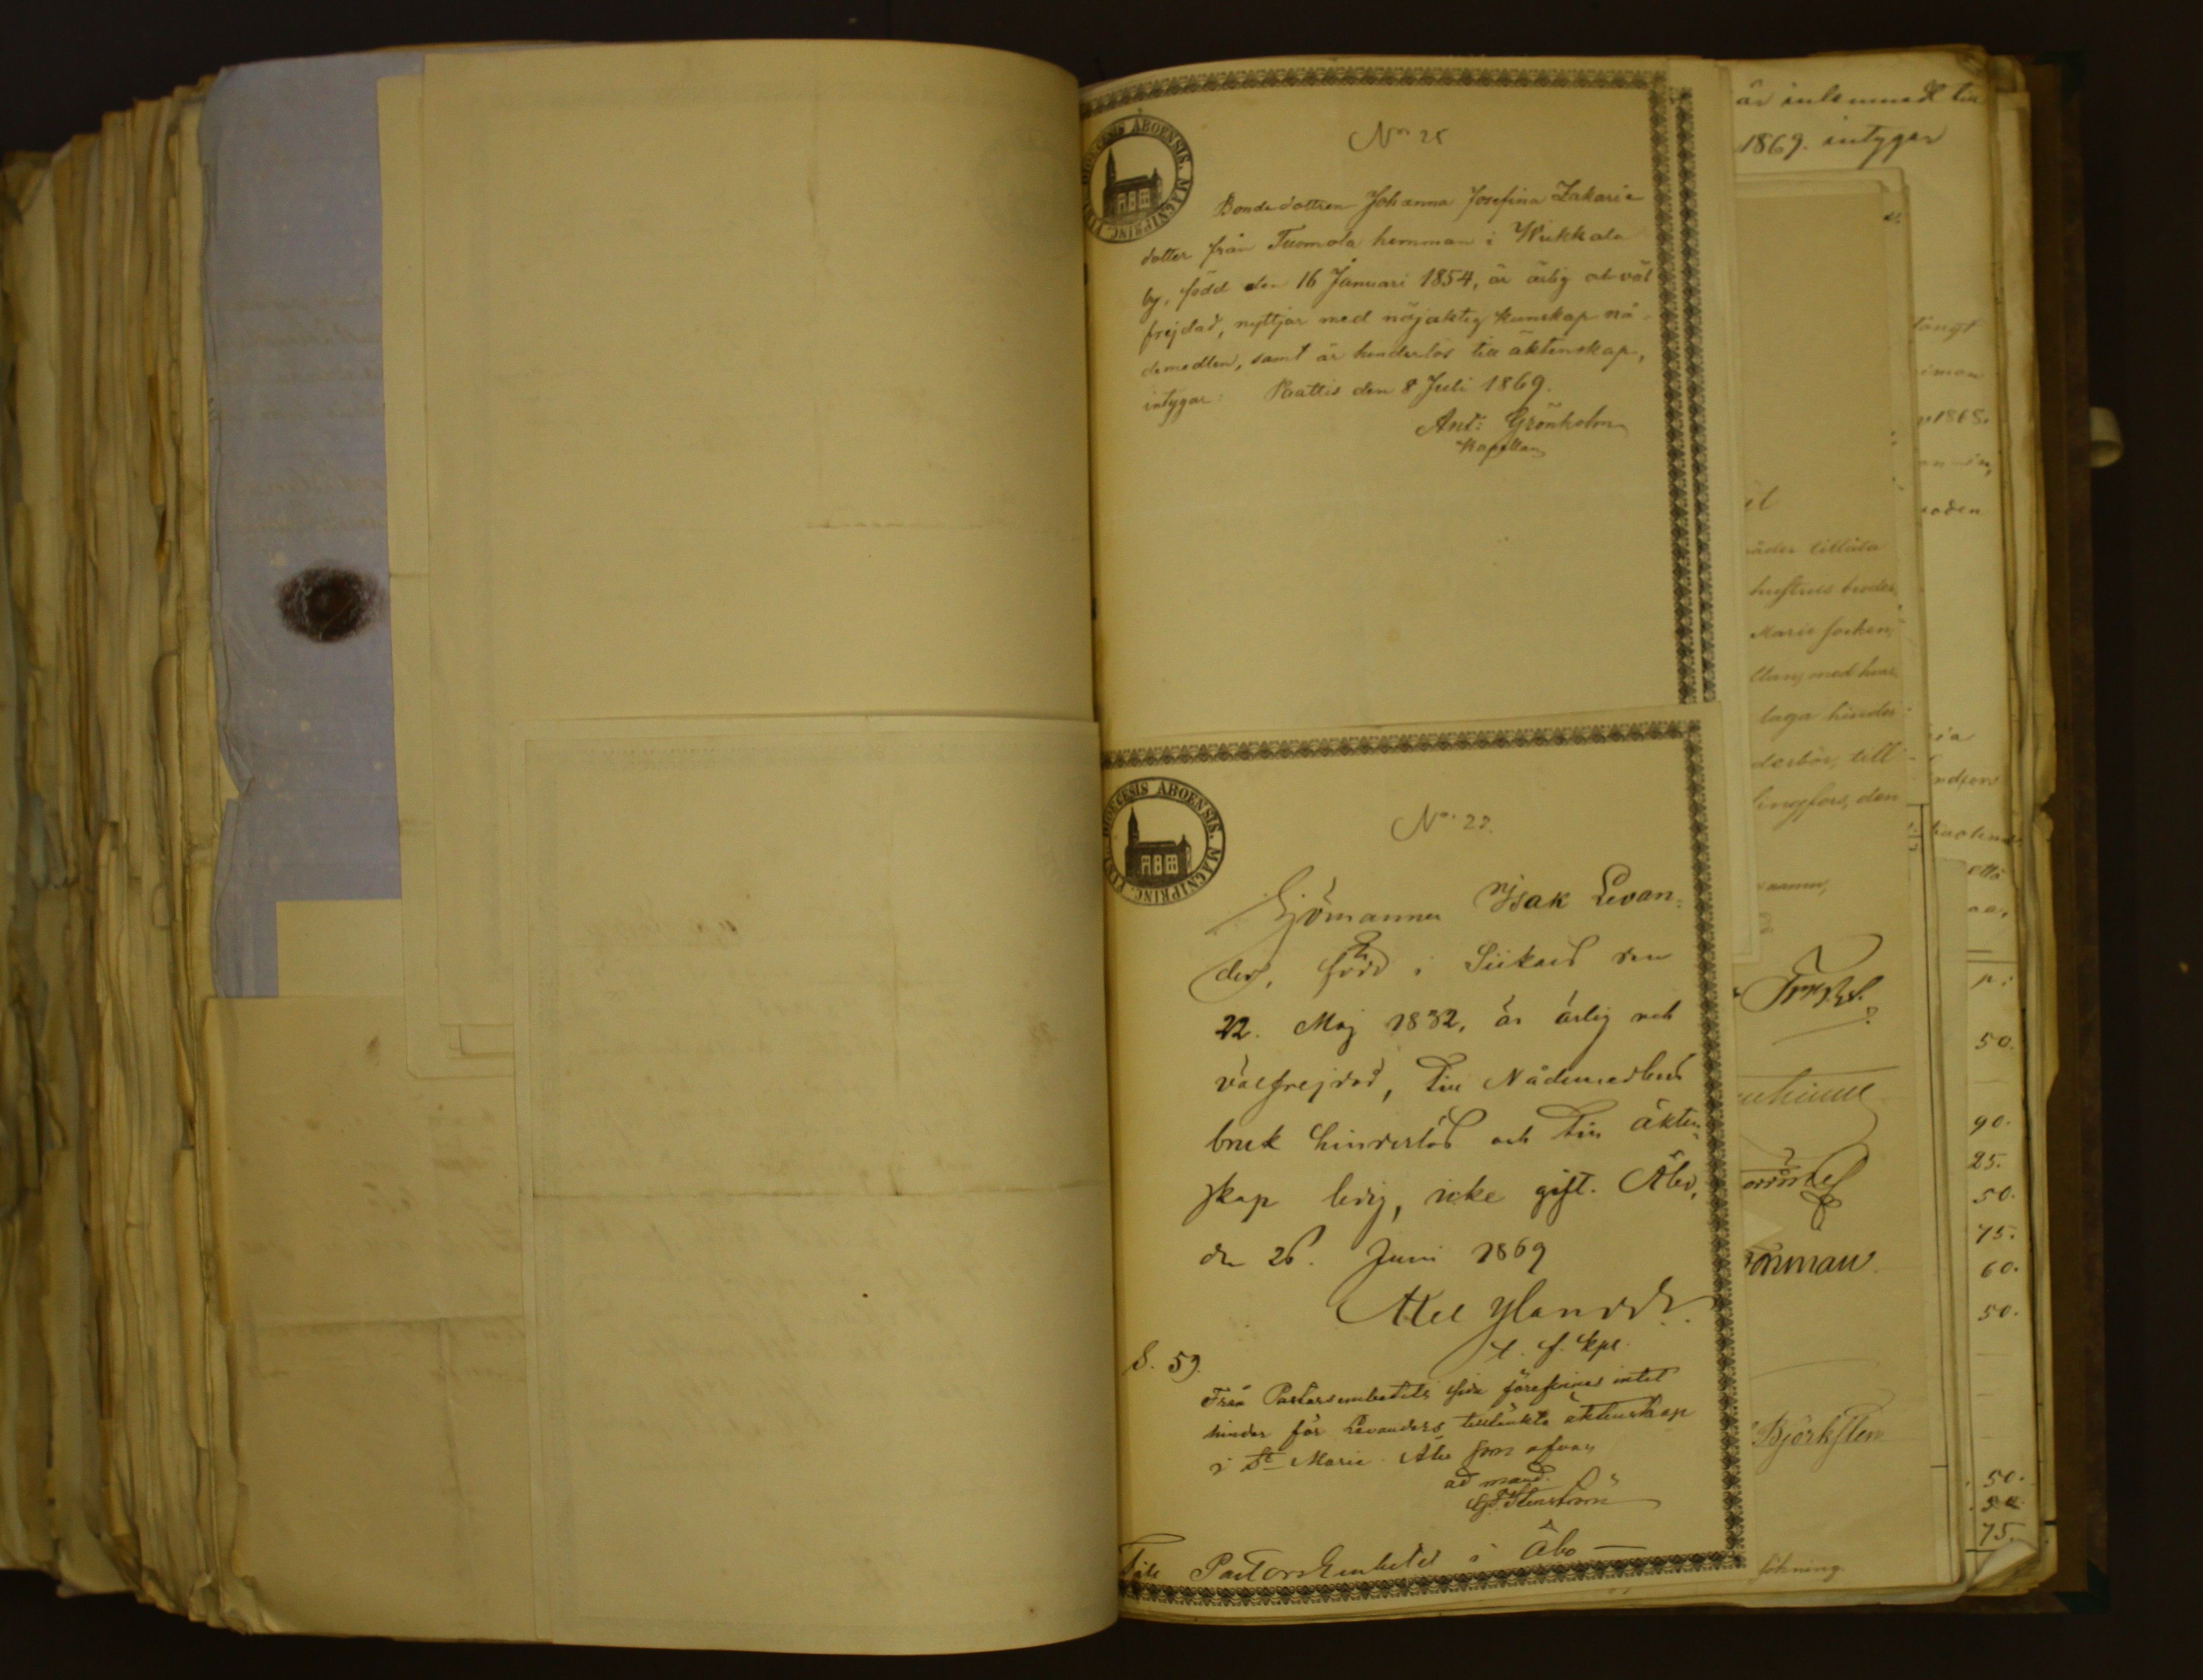 DIOECESIS ABOENSIS. MAGNIPRINC.
No 25
Bondedottren Johanna Josefina Zakarie
dotter från Tuomola hemman i Wukkala
by, född den 16 Januari 1854, är ärlig och väl
frejdad, nyttjar med nöjaktig kunskap nå-
demedlen, samt är hinderlös till äktenskap,
intygar: Paattis den 8 Juli 1869.
Ant: Grönholm
Kapellan
DIOECESIS ABOENSIS. MAGNIPRINC.
No 22.
Sjömannen Isak Levan-
der, född i den
22. Maj 1832, är ärlig och
välfrejdad, till Nådemedlens
bruk hinderlös och till äkten-
skap ledig, icke gift. Åbo,
den 26. Juni 1869
t. f. kpl.
S. 59.
Från Pastorsembetets sida förefinnes intet
hinder för Levanders tilltänkta äktenskap
i St Marie. Åbo som ofvan
ad mand.
Till PastorsEmbetet i Åbo
är inlemnadt till
1869. intygar
längt
1868.
oden
åder tillåta
hustrus broder
Marie socken,
med hvar
laga hinder
derbör, till
singfors, den
50.
90.
25.
50.
75.
60.
50.
Björksten
50.
50
75.
sökning.